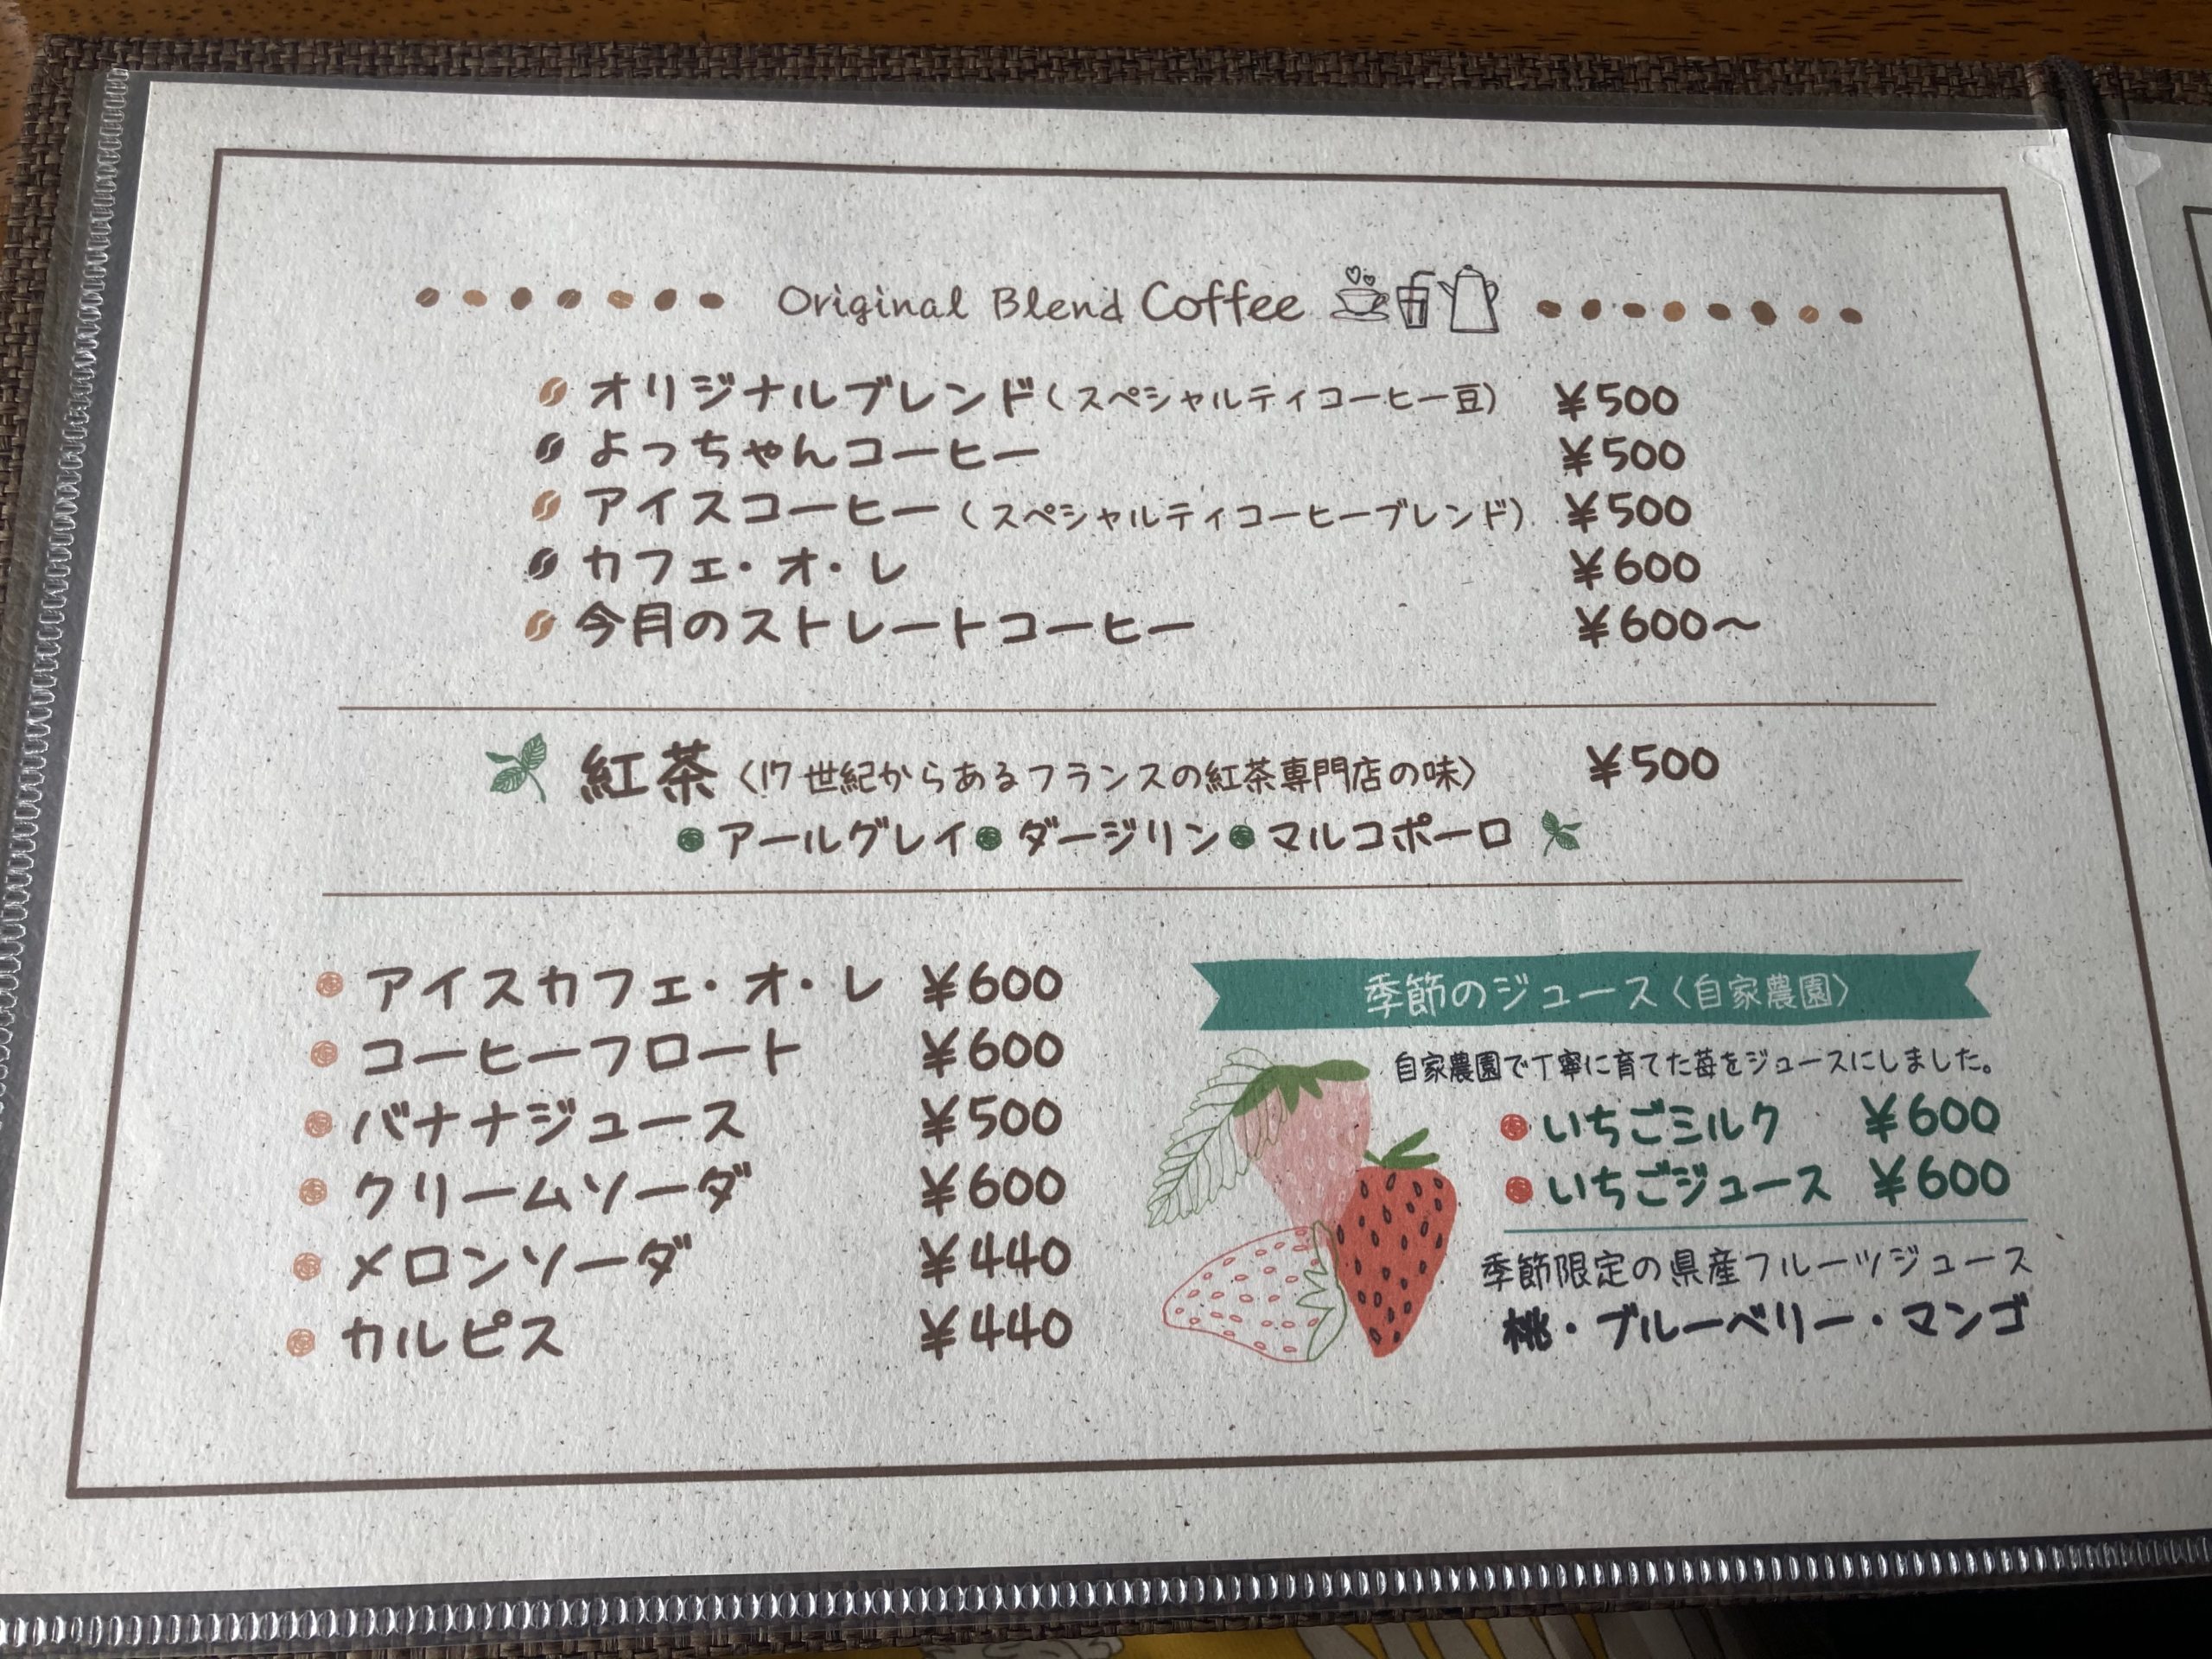 Original Blend Coffee
オリジナルブレンド(スペシャルティコーヒー豆) ¥500
よっちゃんコーヒー ¥500
アイスコーヒー(スペシャルティコーヒーブレンド) ¥500
カフェ・オ・レ ¥600
今月のストレートコーヒー ¥600〜
紅茶〈17世紀からあるフランスの紅茶専門店の味〉 ¥500
アールグレイ ダージリン マルコポーロ
アイスカフェ・オ・レ ¥600
コーヒーフロート ¥600
バナナジュース ¥500
クリームソーダ ¥600
メロンソーダ ¥440
カルピス ¥440
季節のジュース〈自家農園〉
自家農園で丁寧に育てた苺をジュースにしました。
いちごミルク ¥600
いちごジュース ¥600
季節限定の県産フルーツジュース
桃・ブルーベリー・マンゴ